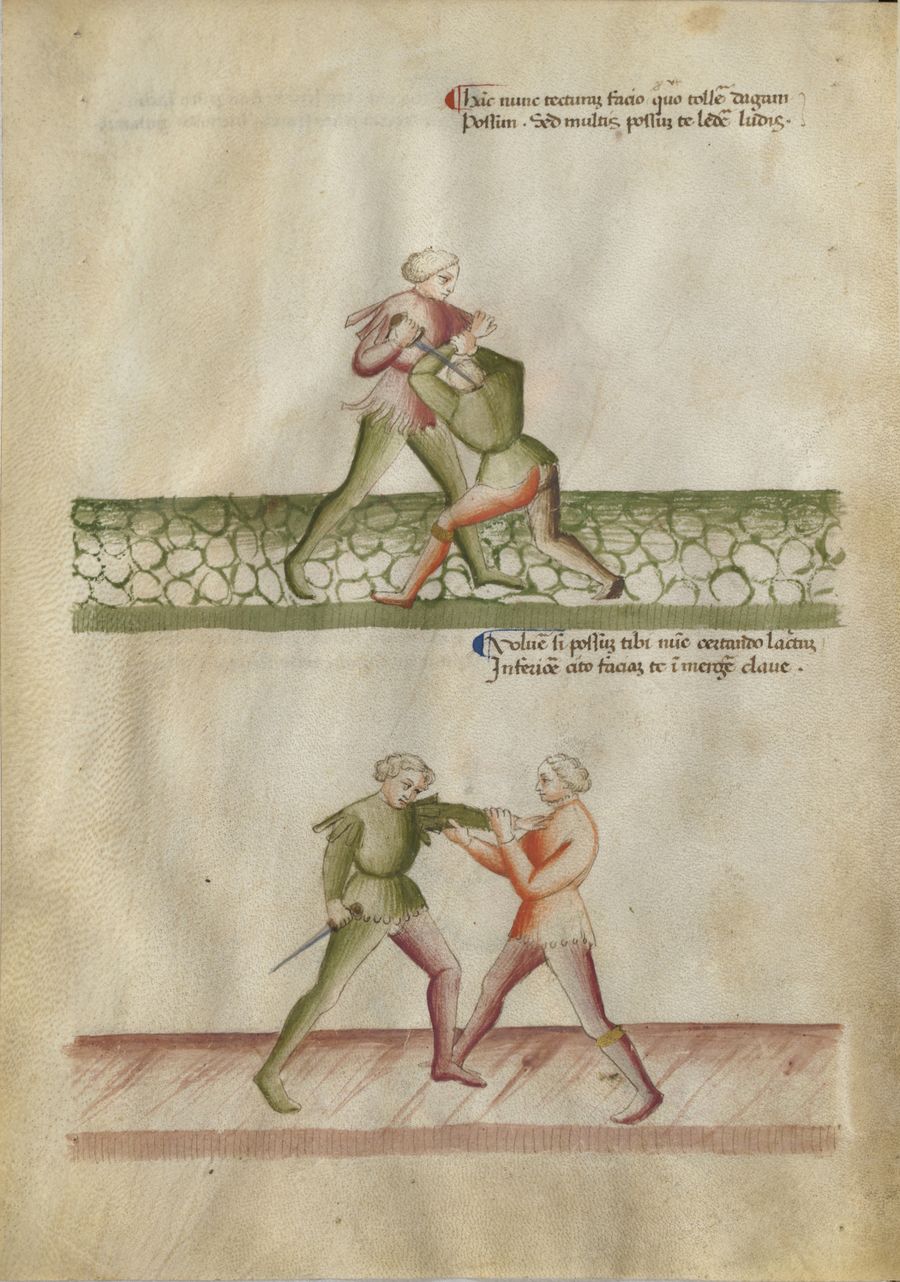 Hāc nunc tecturaʒ facio quo tollē dagam
Possum . Sed multis possuʒ te ledē ludis .
Voluē si possuʒ tibi nūc certando lac̄tuʒ
Inferiōē cito faciaʒ te ī mergē claue .